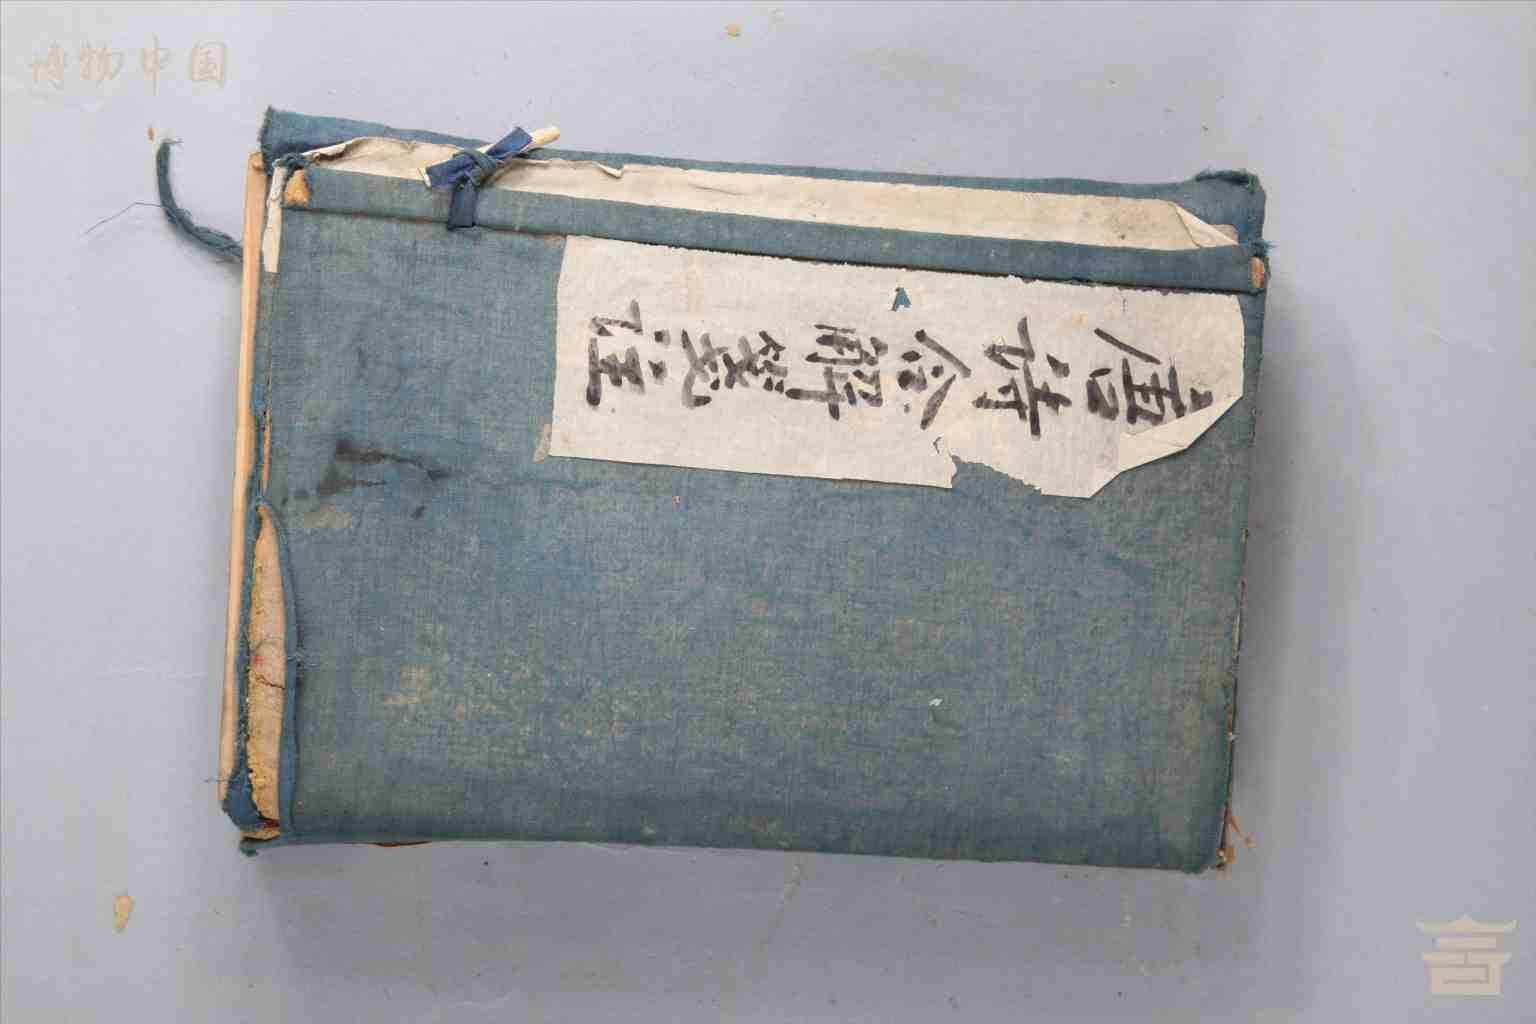 博物中国
唐詩合解箋註